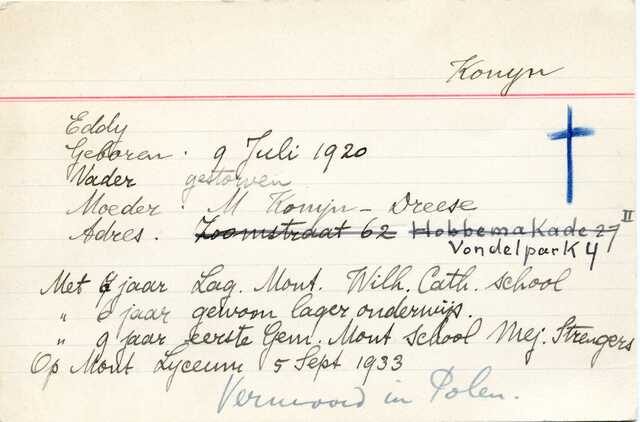 Konyn
Eddy
Geboren. 9 Juli 1920
Vader gestorven
Moeder. M Konijn - Dreese
Adres. Zoomstraat 62 Hobbemakade 27 II
Vondelpark 4
Met jaar Lag. Mont. Wilh. Cath. school
" jaar gewoon lager onderwijs.
" 9 jaar eerste Gem. Mont school Mej. Strengers
Op Mont Lyceum 5 Sept 1933
Vermoord in Polen.